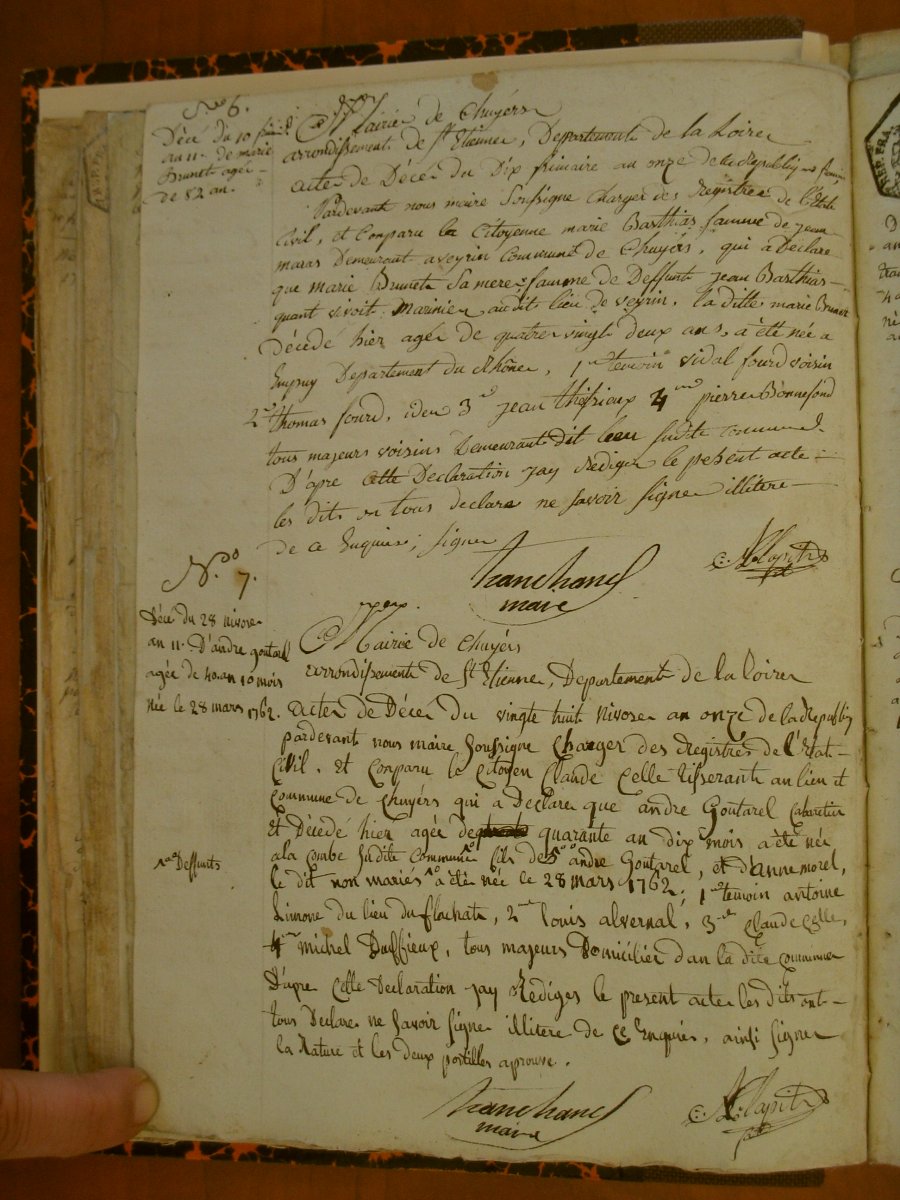 N.º 6.
Décé du 10 frimaire
an 11. de marie
Brunet agee
de 82 an.
Mairie de Chuyérs
arrondissement de St Etienne, Departement de la Loire
acte de Décé du Dix frimaire an onze de la Republiq
Pardevant nous maire Soussigne Charger des Registres de l'Etat
Civil, et Comparu la Citoyenne marie Basthias famme de jean
maras Demeurant a veyrin Commune de Chuyérs, qui à Declare
que marie Brunet Sa mere famme de Deffunt jean Basthias
quant vivoit Marinier audit lieu de veyrin, la ditte marie Brunet
décédé hier agée de quatre vingt deux ans, a été née a
Empuy Departement du Rhône, 1er temoin vidal fourd voisin
2e thomas fourd, idem 3e jean thésieux 4me pierre Bonnefond
tous majeurs voisins Demeurant dit lieu sudite commune.
D'apre Cette Declaration jay Rediger le present acte
les dits on tous declare ne savoir signe illitere
de ce Enquis, signe
tranchand
maire
N.º 7.
Décé du 28 nivose
an 11. D'andre goutarel
agée de 40 an 10 mois
née le 28 mars 1762.
Mairie de Chuyérs
arrondissement de St Etienne, Departement de la Loire
acte de Décé du vingt huit Nivose an onze de la Republiq
pardevant nous maire Soussigne Charger des Registres de l'Etat
Civil. et Comparu le Citoyen Claude Celle tisserant au lieu et
Commune de Chuyérs qui a Declare que andre Goutarel Cabaretier
Et Décedé hier agée de quarante an dix mois a été née
a la Combe sudite Commune fils de andre Goutarel, et d'anne morel,
le dit non mariés a été née le 28 mars 1762, 1er temoin antoine
Limone du lieu du flachat, 2me louis alvernal, 3me Claude Celle,
4me michel Duffieux, tous majeurs Domicilier dan la dite Commune
D'apre Cette Declaration jay Rediges le present acte les dits ont
tous Declare ne savoir signe illitere de Ce Enquis, ainsi signe
la Rature et les deux aprouve.
Deffunts
tranchand
maire